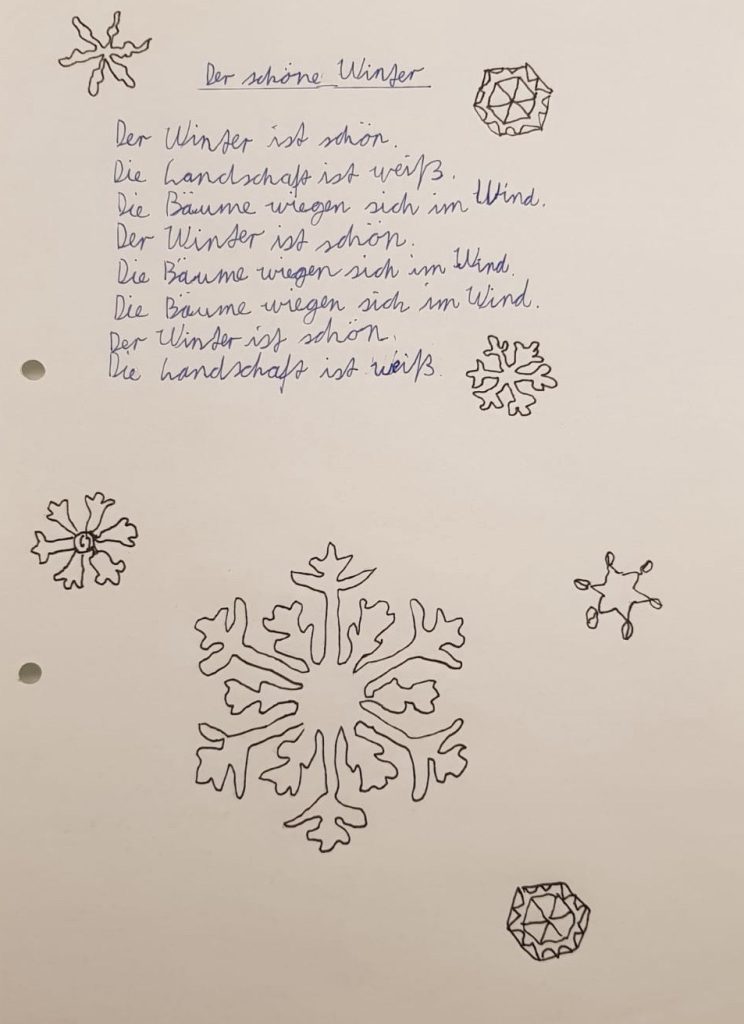 Der schöne Winter
Der Winter ist schön.
Die Landschaft ist weiß.
Die Bäume wiegen sich im Wind.
Der Winter ist schön.
Die Bäume wiegen sich im Wind.
Die Bäume wiegen sich im Wind.
Der Winter ist schön.
Die Landschaft ist weiß.